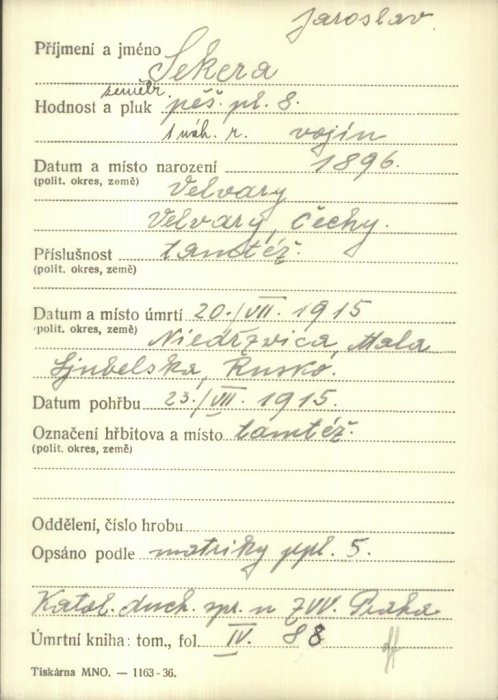 Jaroslav
Příjmení a jméno Sekera
zeměbr.
Hodnost a pluk pěš. pl. 8.
1 náh. r. vojín
Datum a místo narození 1896.
(polit. okres, země) Velvary
Velvary, Čechy.
Příslušnost tamtéž.
(polit. okres, země)
Datum a místo úmrtí 20./VII. 1915
(polit. okres, země) Niedřzvica, Mala
Ljubelská, Rusko.
Datum pohřbu 23./VII. 1915.
Označení hřbitova a místo tamtéž.
(polit. okres, země)
Oddělení, číslo hrobu
Opsáno podle matriky ppl. 5.
Katol. duch. spr. u ZVV. Praha
Úmrtní kniha: tom., fol. IV. 88
Tiskárna MNO. — 1163-36.